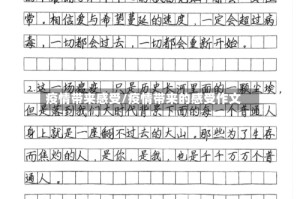 带。相信爱与希望蔓延的速度，一定会超过病
毒，一切都会过去，一切都会重新开始。
2.这一场感疫，只是历史长河里面的一颗尘埃，
疫情带来感受/疫情带来的感受作文
但是落到我们大时代背景下面的每一个普通人
身上就是一座翻不过去的大山。那些为了生存
而焦灼的人，是你，是我，也是千千万万个普
通人。